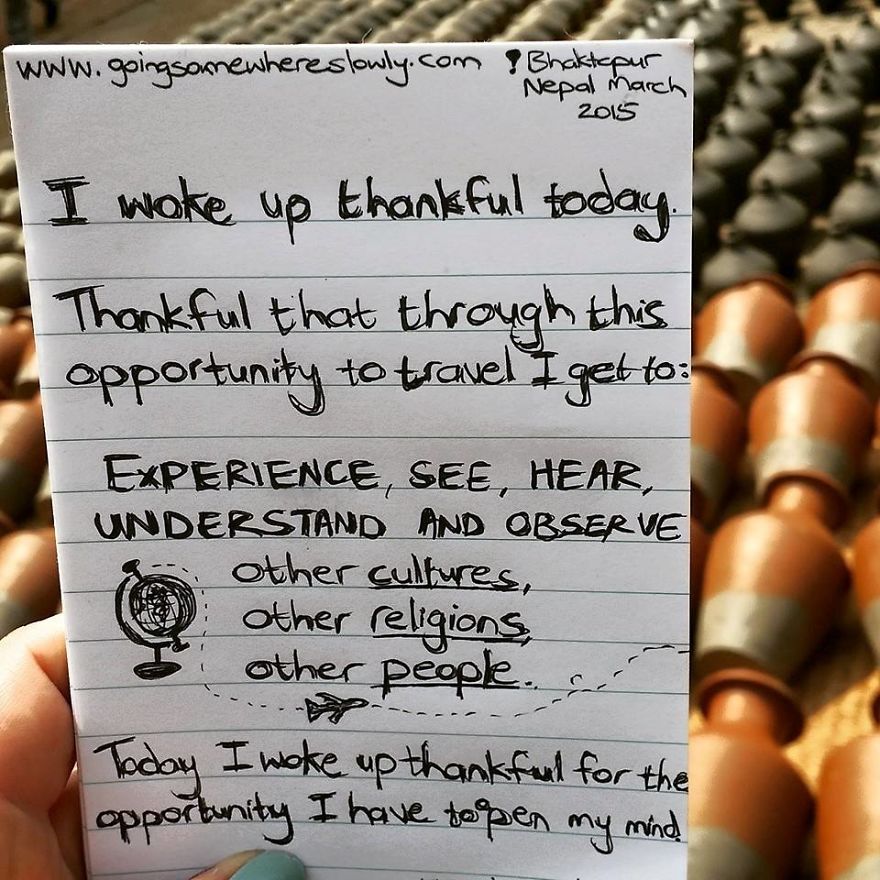 www.goingsomewhereslowly.com
Bhaktapur
Nepal March
2015
I woke up thankful today.
Thankful that through this
opportunity to travel I get to:
EXPERIENCE, SEE, HEAR,
UNDERSTAND AND OBSERVE
other cultures,
other religions,
other people.
Today I woke up thankful for the
opportunity I have to open my mind.